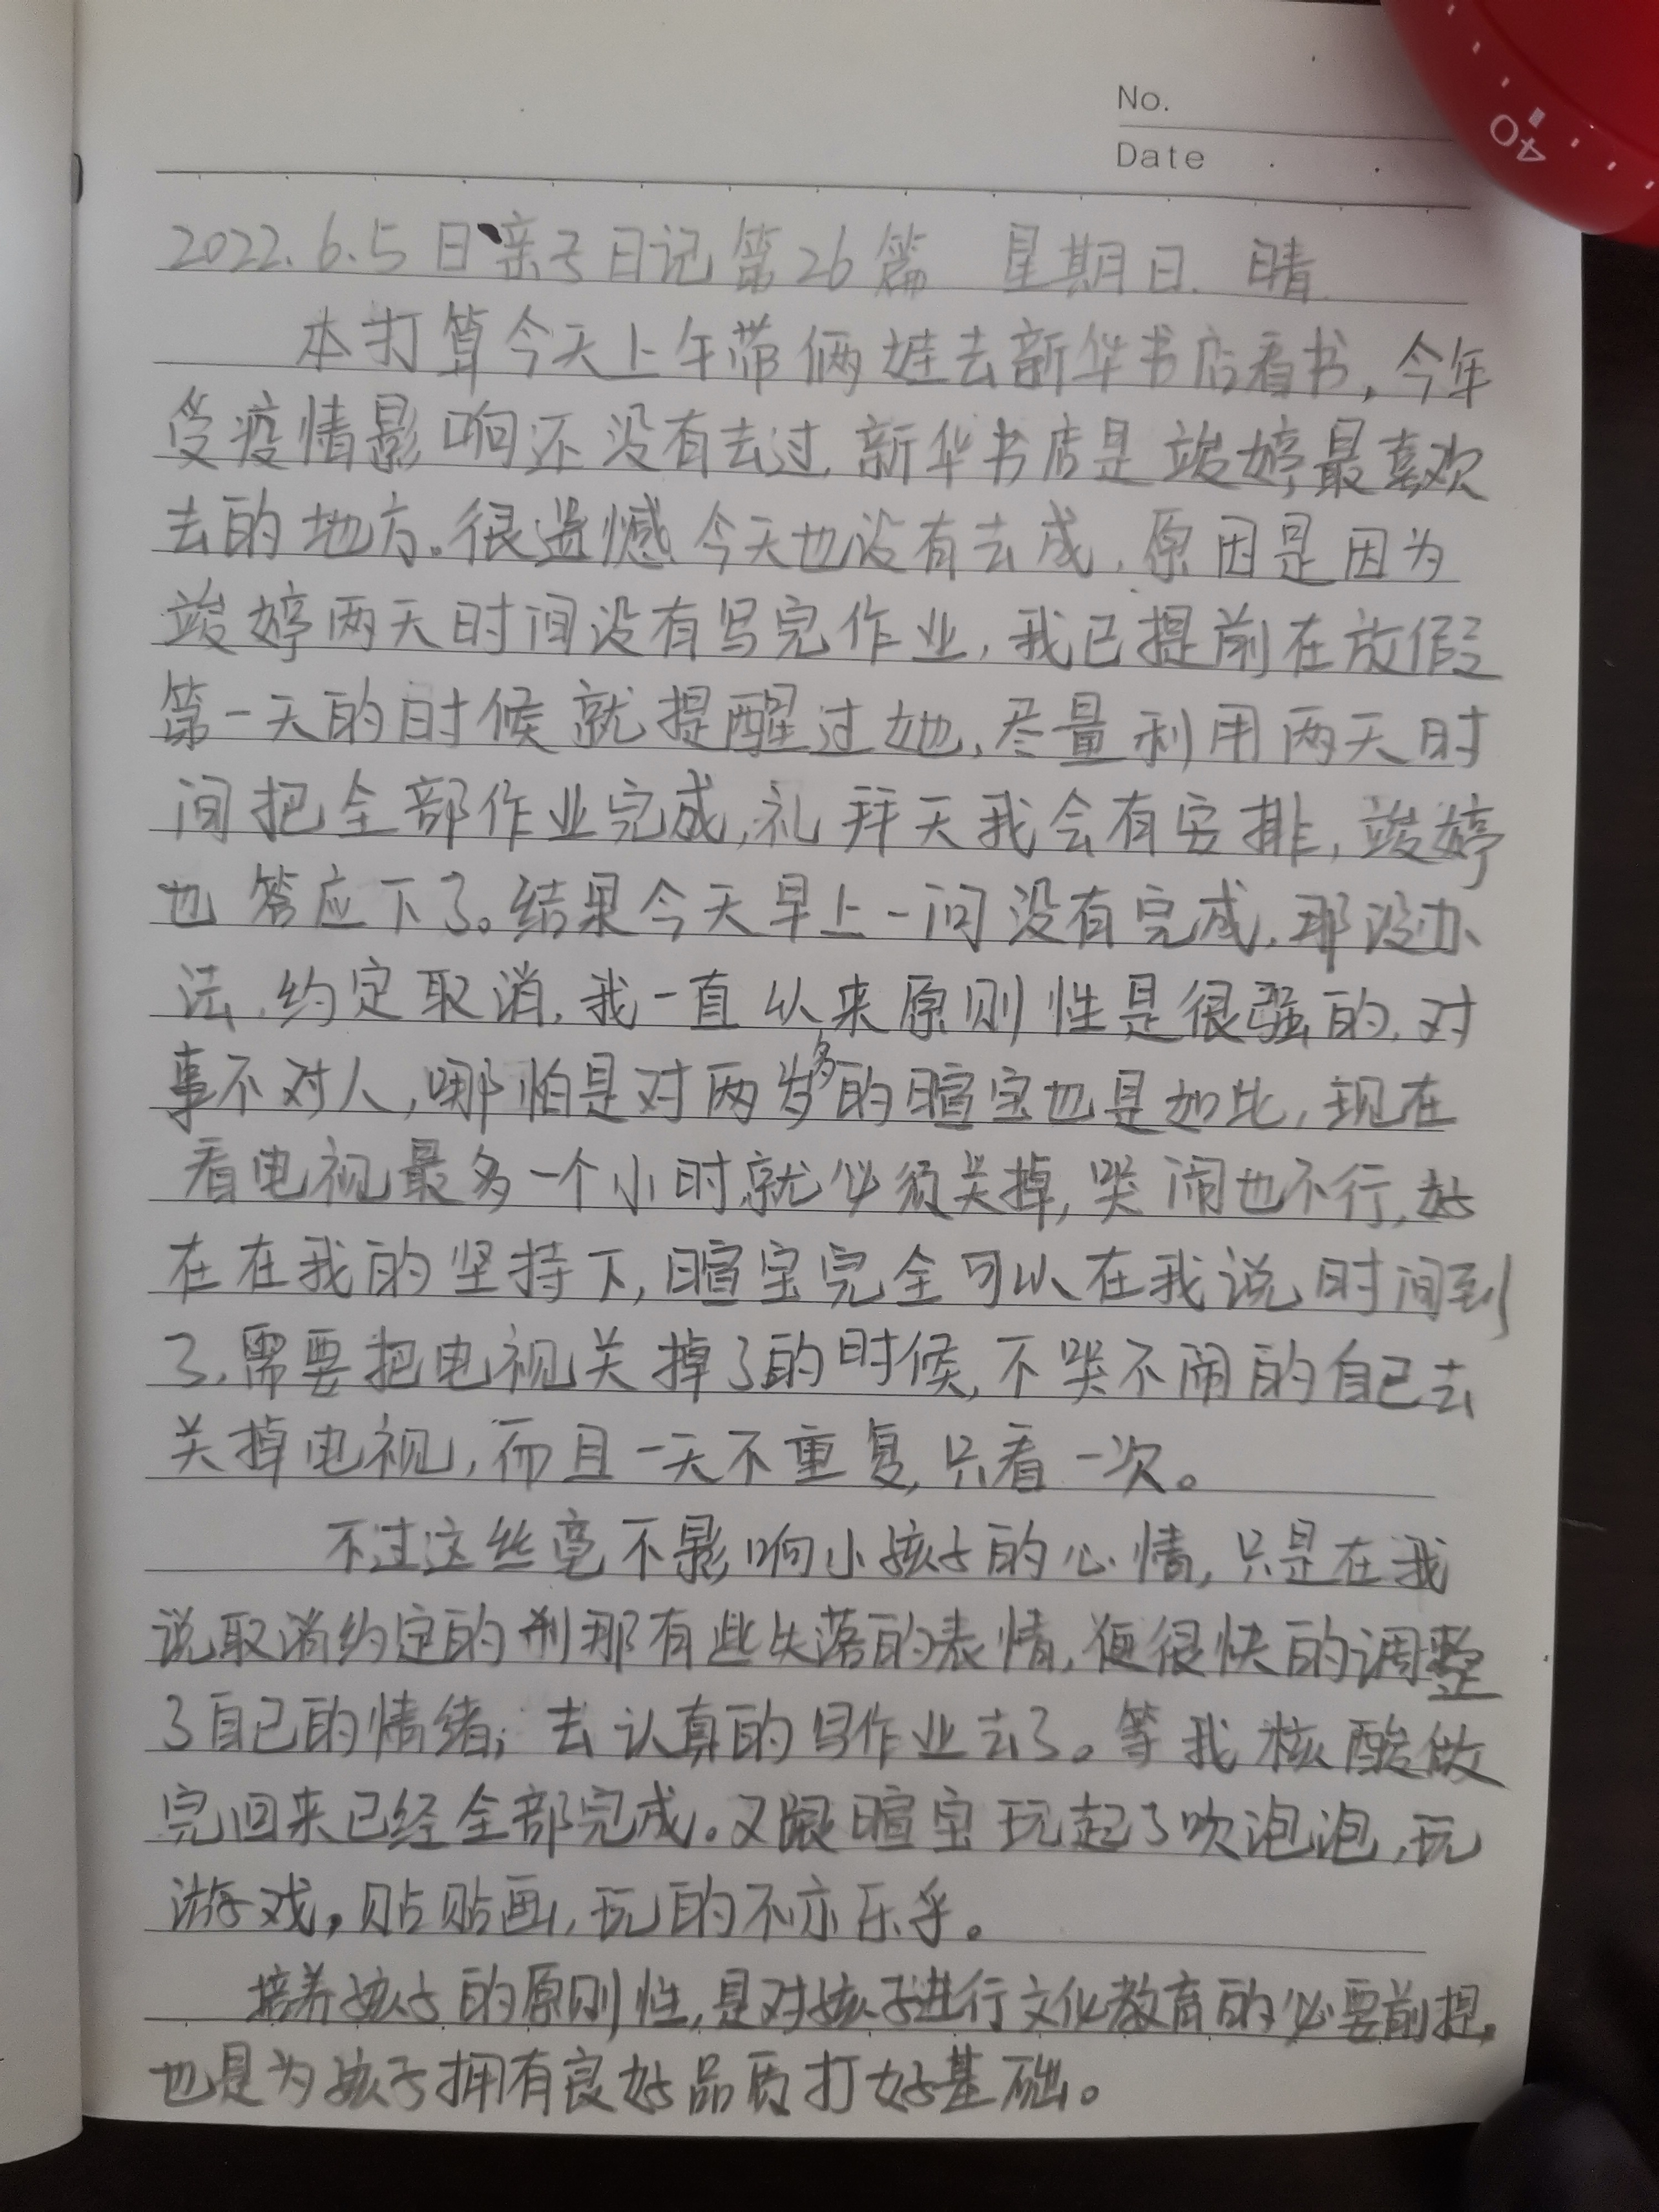 No.
Date
40
2022.6.5日亲子日记第26篇 星期日. 晴
本打算今天上午带俩娃去新华书店看书,今年
受疫情影响还没有去过,新华书店是竣婷最喜欢
去的地方。很遗憾今天也没有去成,原因是因为
竣婷两天时间没有写完作业,我已提前在放假
第一天的时候就提醒过她,尽量利用两天时
间把全部作业完成,礼拜天我会有安排,竣婷
也答应下了。结果今天早上一问没有完成,那没办
法,约定取消,我一直从来原则性是很强的,对
事不对人,哪怕是对两岁多的暄宝也是如此,现在
看电视最多一个小时就必须关掉,哭闹也不行,好
在在我的坚持下,暄宝完全可以在我说时间到
了,需要把电视关掉了的时候,不哭不闹的自己去
关掉电视,而且一天不重复,只看一次。
不过这丝毫不影响小孩子的心情,只是在我
说取消约定的刹那有些失落的表情,便很快的调整
了自己的情绪;去认真的写作业去了。等我核酸做
完回来已经全部完成。又跟暄宝玩起了吹泡泡,玩
游戏,贴贴画,玩的不亦乐乎。
培养孩子的原则性,是对孩子进行文化教育的必要前提,
也是为孩子拥有良好品质打好基础。